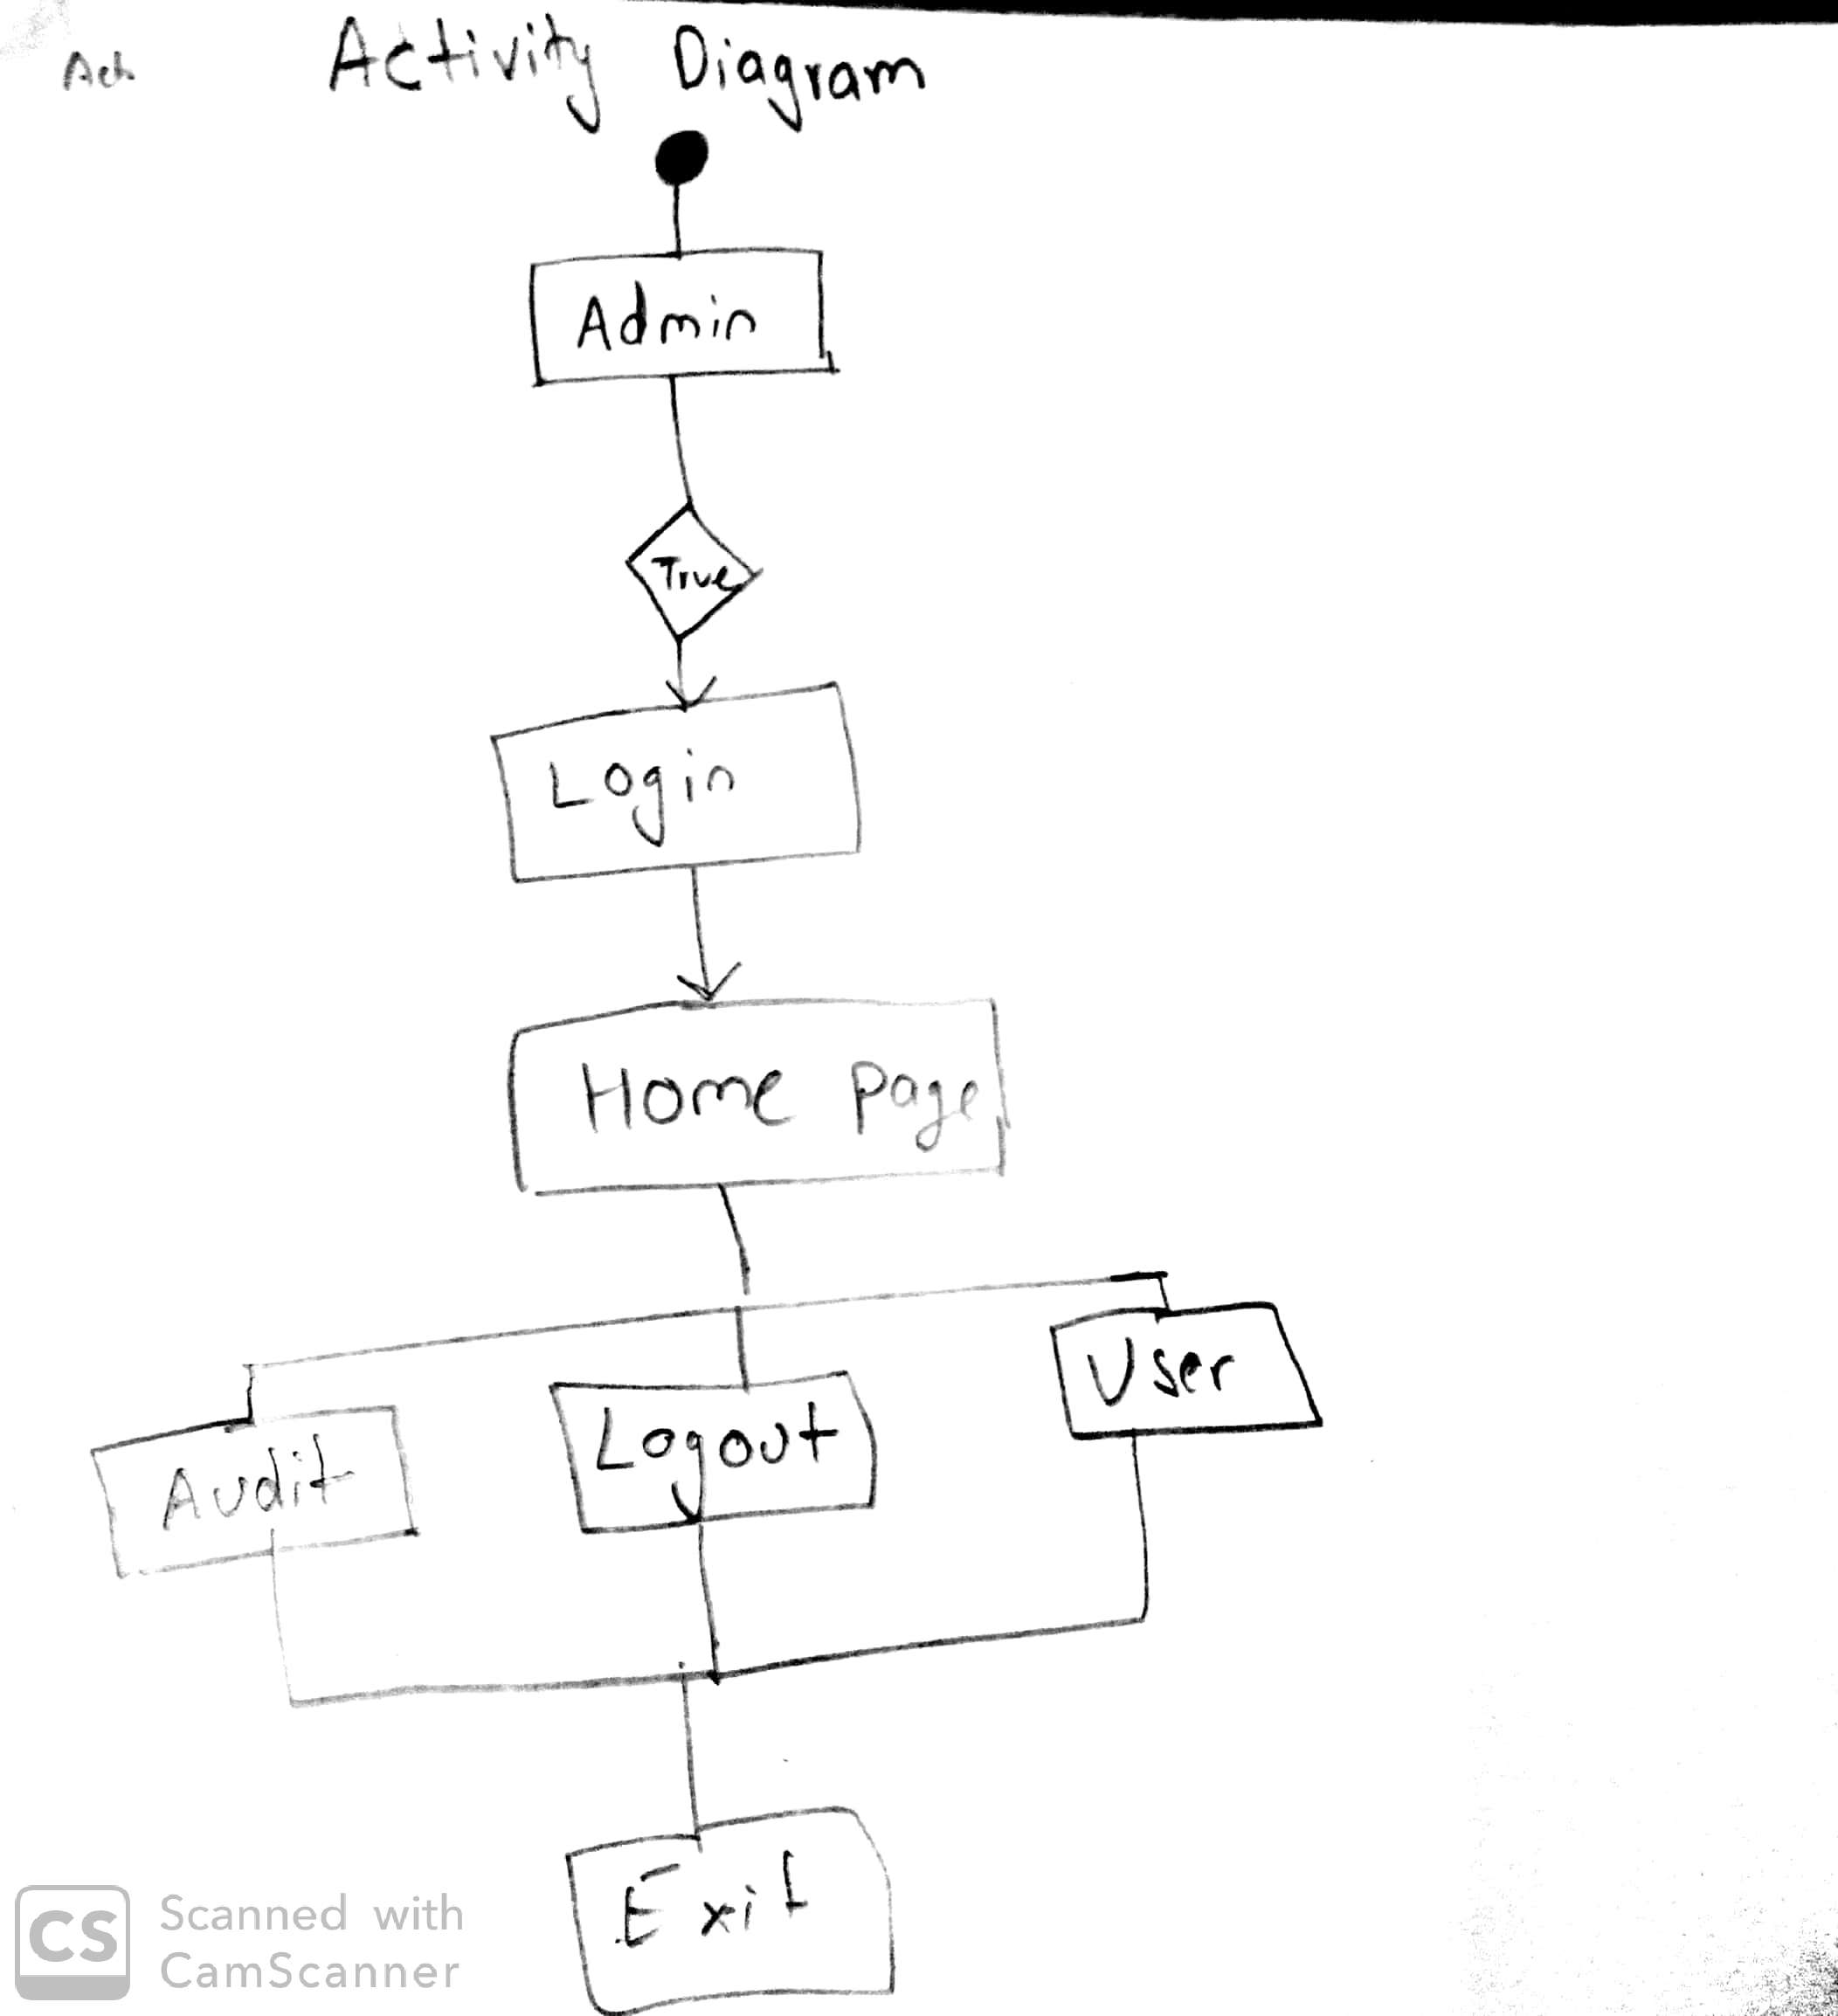 Act Activity Diagram
Admin
True
Login
Home Page
User
Logout
Audit
Exit
CS Scanned with
CamScanner